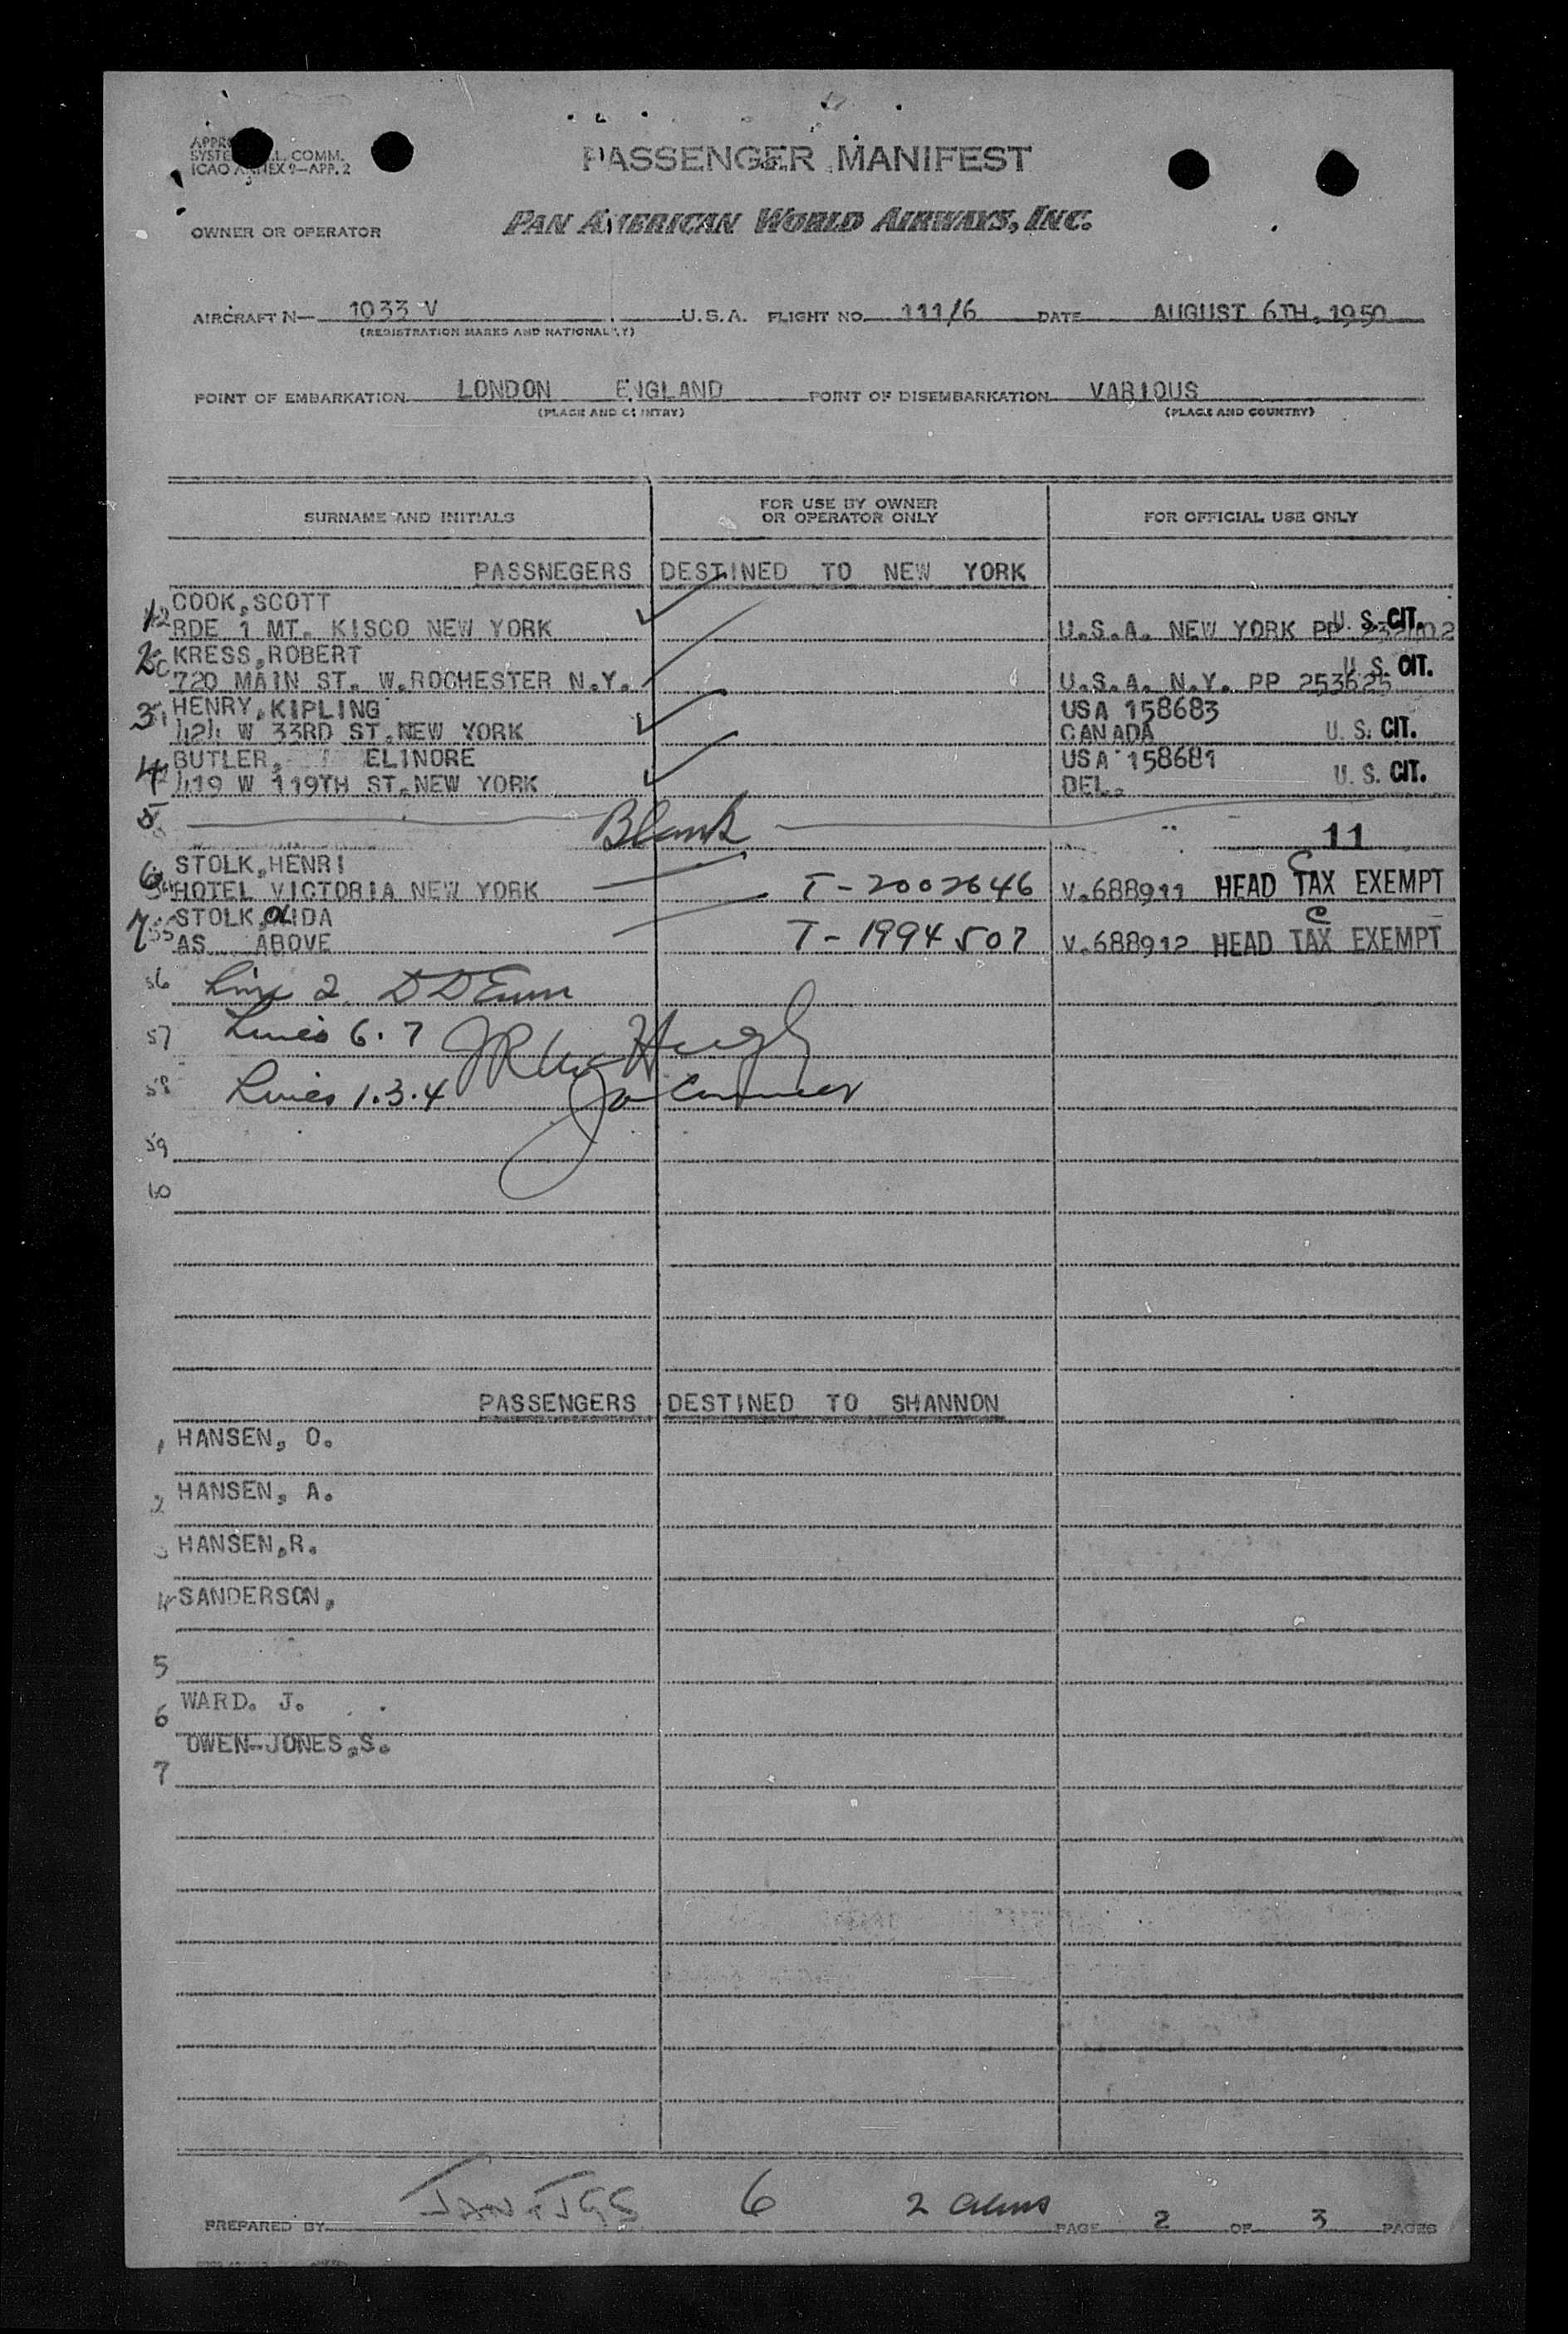 PASSENGER MANIFEST
SYSTE L. COMM.
ICAO ANNEX 9—APP. 2
PAN AMERICAN WORLD AIRWAYS, INC.
OWNER OR OPERATOR
AIRCRAFT N— 1033 V U.S.A. FLIGHT NO. 111/6 DATE AUGUST 6TH. 1950
(REGISTRATION MARKS AND NATIONALITY)
POINT OF EMBARKATION LONDON ENGLAND POINT OF DISEMBARKATION VARIOUS
(PLACE AND COUNTRY) (PLACE AND COUNTRY)
SURNAME AND INITIALS FOR USE BY OWNER OR OPERATOR ONLY FOR OFFICIAL USE ONLY
PASSNEGERS DESTINED TO NEW YORK
1 COOK,SCOTT
RDE 1 MT. KISCO NEW YORK U.S.A. NEW YORK PP U. S. CIT.
2 KRESS,ROBERT
720 MAIN ST. W.ROCHESTER N.Y. U.S.A. N.Y. PP 253625 U. S. CIT.
3 HENRY,KIPLING USA 158683
424 W 33RD ST.NEW YORK CANADA U. S. CIT.
4 BUTLER, ELINORE USA 158681
419 W 119TH ST.NEW YORK DEL. U. S. CIT.
5 Blank 11
6 STOLK,HENRI C
HOTEL VICTORIA NEW YORK T-2002646 V.688911 HEAD TAX EXEMPT
7 STOLK, IDA C
55 AS ABOVE T-1994507 V.688912 HEAD TAX EXEMPT
56 Line 2
57 Lines 6.7
58 Lines 1.3.4
59
60
PASSENGERS DESTINED TO SHANNON
1 HANSEN, O.
2 HANSEN, A.
3 HANSEN,R.
4 SANDERSON,
5
6 WARD. J.
OWEN-JONES,S.
7
6 2 aliens
PREPARED BY PAGE 2 OF 3 PAGES